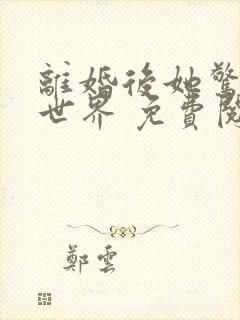 離婚後她驚
世界 免費閱
鄭雲